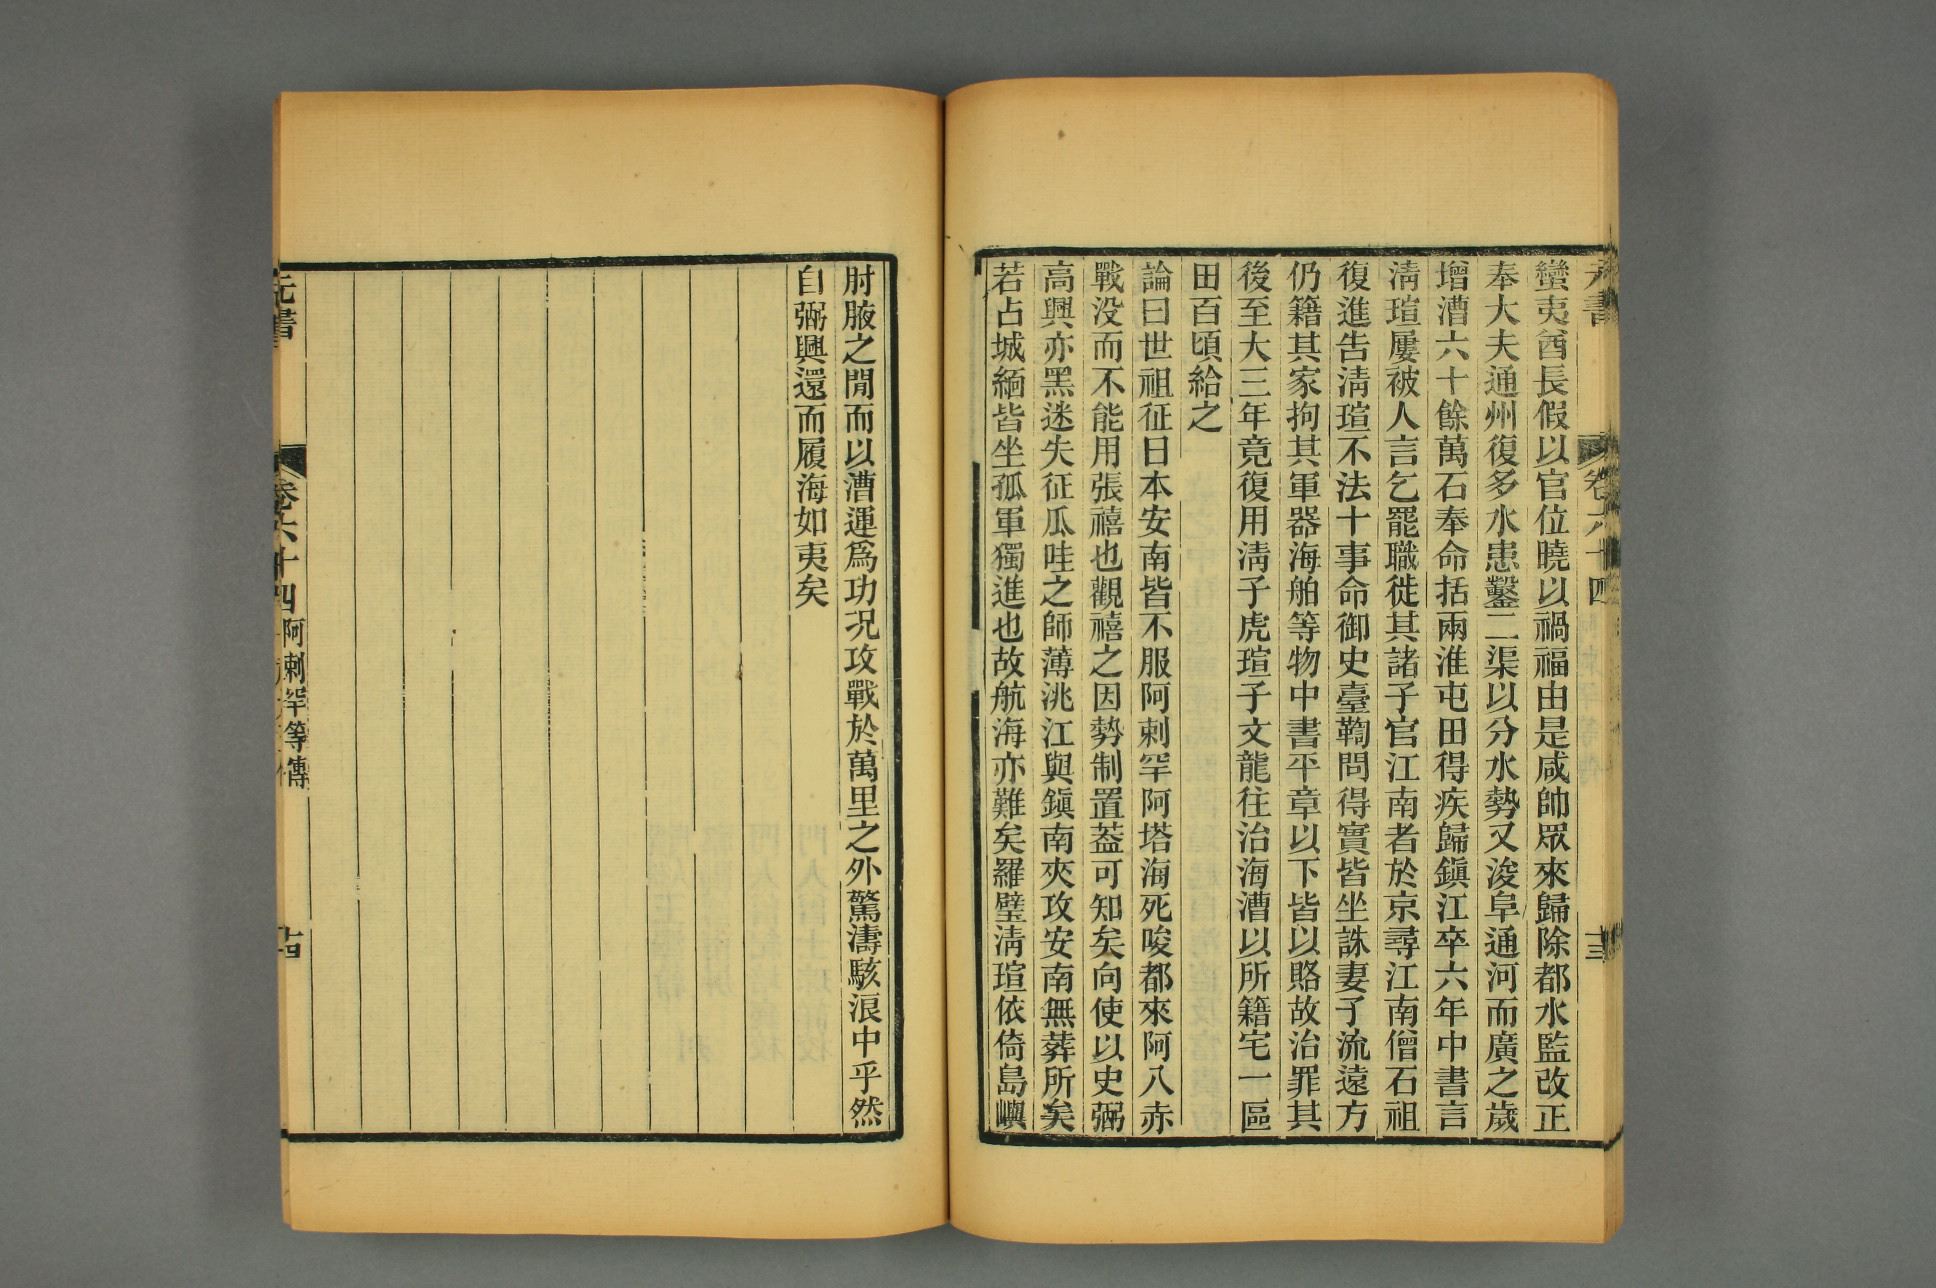 元書
卷六十四
十三
蠻夷酋長假以官位曉以禍福由是咸帥眾來歸除都水監改正
奉大夫通州復多水患鑿二渠以分水勢又浚阜通河而廣之歲
增漕六十餘萬石奉命括兩淮屯田得疾歸鎮江卒六年中書言
淸瑄屢被人言乞罷職徙其諸子官江南者於京尋江南僧石祖
復進告淸瑄不法十事命御史臺鞫問得實皆坐誅妻子流遠方
仍籍其家拘其軍器海舶等物中書平章以下皆以賂故治罪其
後至大三年竟復用淸子虎瑄子文龍往治海漕以所籍宅一區
田百頃給之
論曰世祖征日本安南皆不服阿剌罕阿塔海死唆都來阿八赤
戰没而不能用張禧也觀禧之因勢制置葢可知矣向使以史弼
高興亦黑迷失征瓜哇之師薄洮江與鎮南夾攻安南無葬所矣
若占城緬皆坐孤軍獨進也故航海亦難矣羅璧淸瑄依倚島嶼
肘腋之閒而以漕運爲功况攻戰於萬里之外驚濤駭浪中乎然
自弼興還而履海如夷矣
元書
卷六十四
阿剌罕等傳
十四